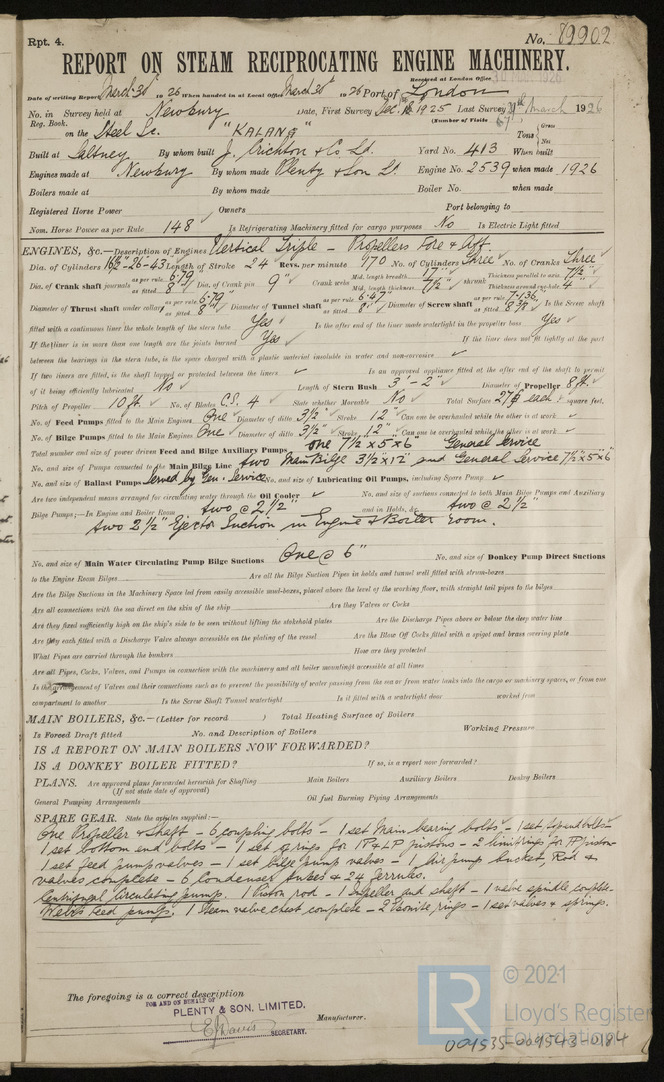 Rpt. 4.
No. 89902
REPORT ON STEAM RECIPROCATING ENGINE MACHINERY.
Received at London Office
Date of writing Report March 30th 1926 When handed in at Local Office March 30th 1926 Port of London
No. in Survey held at Newbury Date, First Survey Dec. 1925 Last Survey March 1926
Reg. Book. (Number of Visits 67)
on the Steel Sc. "KALANG" Tons Gross Net
Built at Saltney By whom built J. Crichton & Co Ld. Yard No. 413 When built
Engines made at Newbury By whom made Plenty & Son Ld. Engine No. 2539 when made 1926
Boilers made at By whom made Boiler No. when made
Registered Horse Power Owners Port belonging to
Nom. Horse Power as per Rule 148 Is Refrigerating Machinery fitted for cargo purposes No Is Electric Light fitted
ENGINES, &c.—Description of Engines Vertical Triple – Propellers Fore & Aft.
Dia. of Cylinders 16½"-26-43 Length of Stroke 24 Revs. per minute No. of Cylinders Three No. of Cranks Three
Dia. of Crank shaft journals as per rule 6.79 as fitted 8" Dia. of Crank pin 9" Crank webs Mid. length breadth 17" Mid. length thickness 7½" shrunk Thickness parallel to axis 7½" Thickness around eye-hole 4"
Diameter of Thrust shaft under collars as per rule 6.79 as fitted 8" Diameter of Tunnel shaft as per rule 6.47 as fitted 8" Diameter of Screw shaft as per rule 7.136 as fitted 8⅜ Is the Screw shaft
fitted with a continuous liner the whole length of the stern tube Yes Is the after end of the liner made watertight in the propeller boss Yes
If the liner is in more than one length are the joints burned Yes If the liner does not fit tightly at the part
between the bearings in the stern tube, is the space charged with a plastic material insoluble in water and non-corrosive
If two liners are fitted, is the shaft lapped or protected between the liners Is an approved appliance fitted at the after end of the shaft to permit
of it being efficiently lubricated No Length of Stern Bush 3'-2" Diameter of Propeller 8 ft.
Pitch of Propeller 10 ft. No. of Blades C.S. 4 State whether Moveable No Total Surface each square feet.
No. of Feed Pumps fitted to the Main Engines One Diameter of ditto 3½" Stroke 12" Can one be overhauled while the other is at work
No. of Bilge Pumps fitted to the Main Engines One Diameter of ditto 3½" Stroke 12" Can one be overhauled while the other is at work
Total number and size of power driven Feed and Bilge Auxiliary Pumps one 7½"x5"x6" General Service
No. and size of Pumps connected to the Main Bilge Line two Main Bilge 3½"x12" and General Service 7½"x5"x6"
No. and size of Ballast Pumps Served by Gen. Service No. and size of Lubricating Oil Pumps, including Spare Pump
Are two independent means arranged for circulating water through the Oil Cooler No. and size of suctions connected to both Main Bilge Pumps and Auxiliary
Bilge Pumps;—In Engine and Boiler Room two @ 2½" and in Holds, &c. two @ 2½"
two 2½" Ejector Suction in Engine & Boiler room.
No. and size of Main Water Circulating Pump Bilge Suctions One @ 6" No. and size of Donkey Pump Direct Suctions
to the Engine Room Bilges Are all the Bilge Suction Pipes in holds and tunnel well fitted with strum-boxes
Are the Bilge Suctions in the Machinery Space led from easily accessible mud-boxes, placed above the level of the working floor, with straight tail pipes to the bilges
Are all connections with the sea direct on the skin of the ship Are they Valves or Cocks
Are they fixed sufficiently high on the ship's side to be seen without lifting the stokehold plates Are the Discharge Pipes above or below the deep water line
Are they each fitted with a Discharge Valve always accessible on the plating of the vessel Are the Blow Off Cocks fitted with a spigot and brass covering plate
What Pipes are carried through the bunkers How are they protected
Are all Pipes, Cocks, Valves, and Pumps in connection with the machinery and all boiler mountings accessible at all times
Is the arrangement of Valves and their connections such as to prevent the possibility of water passing from the sea or from water tanks into the cargo or machinery spaces, or from one
compartment to another Is the Screw Shaft Tunnel watertight Is it fitted with a watertight door worked from
MAIN BOILERS, &c.—(Letter for record ) Total Heating Surface of Boilers
Is Forced Draft fitted No. and Description of Boilers Working Pressure
IS A REPORT ON MAIN BOILERS NOW FORWARDED?
IS A DONKEY BOILER FITTED? If so, is a report now forwarded?
PLANS. Are approved plans forwarded herewith for Shafting Main Boilers Auxiliary Boilers Donkey Boilers
(If not state date of approval)
General Pumping Arrangements Oil fuel Burning Piping Arrangements
SPARE GEAR. State the articles supplied:—
One Propeller & Shaft – 6 coupling bolts – 1 set Main bearing bolts – 1 set, top end bolts –
1 set bottom end bolts – 1 set of rings for IP & LP pistons – 2 rings for HP piston –
1 set feed pump valves – 1 set bilge pump valves – 1 Air pump bucket, Rod &
valves complete – 6 Condenser tubes & 24 ferrules.
Centrifugal Circulating pump. 1 Piston rod – 1 Impeller and shaft – 1 valve spindle complete.
Weir's feed pump. 1 Steam valve chest complete – 2 Ebonite rings – 1 set valves & springs.
The foregoing is a correct description
FOR AND ON BEHALF OF
PLENTY & SON, LIMITED.
Manufacturer.
E. Davis SECRETARY.
LR © 2021
Lloyd's Register
Foundation
004535-004543-0184